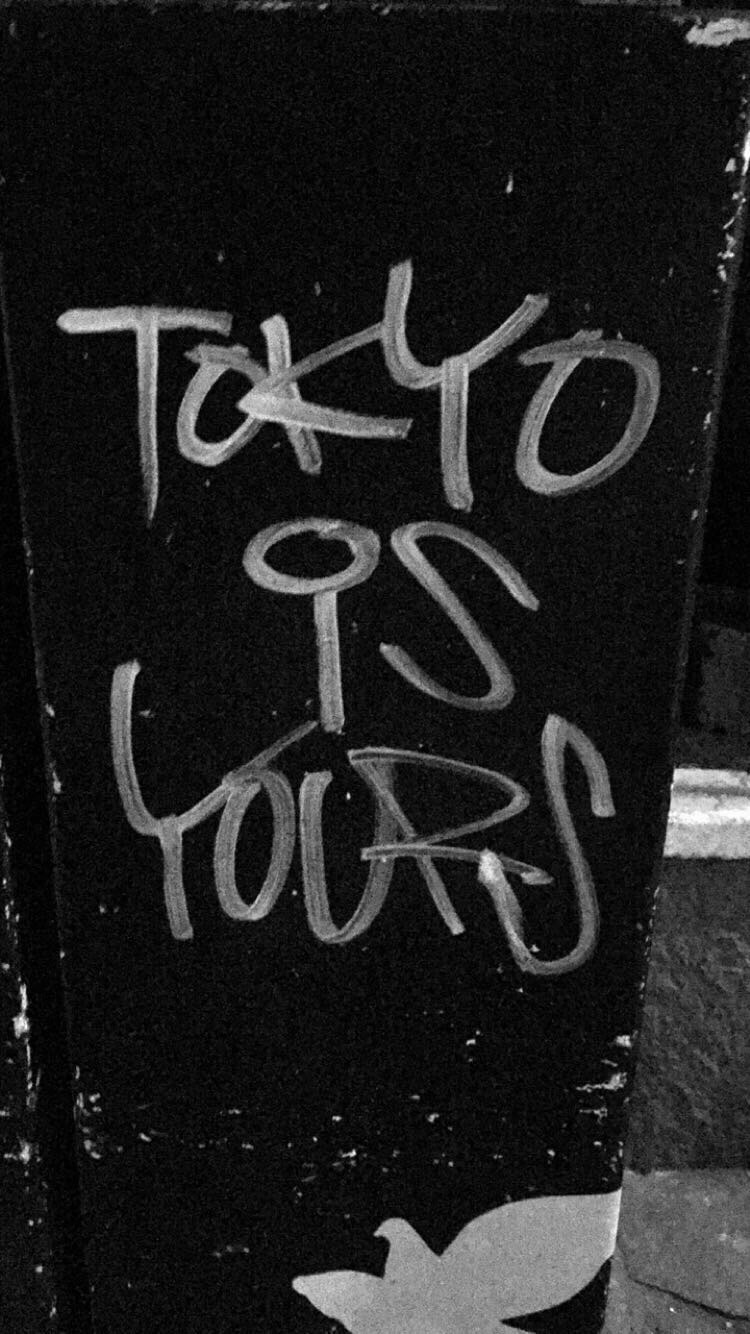 TOKYO
IS
YOURS